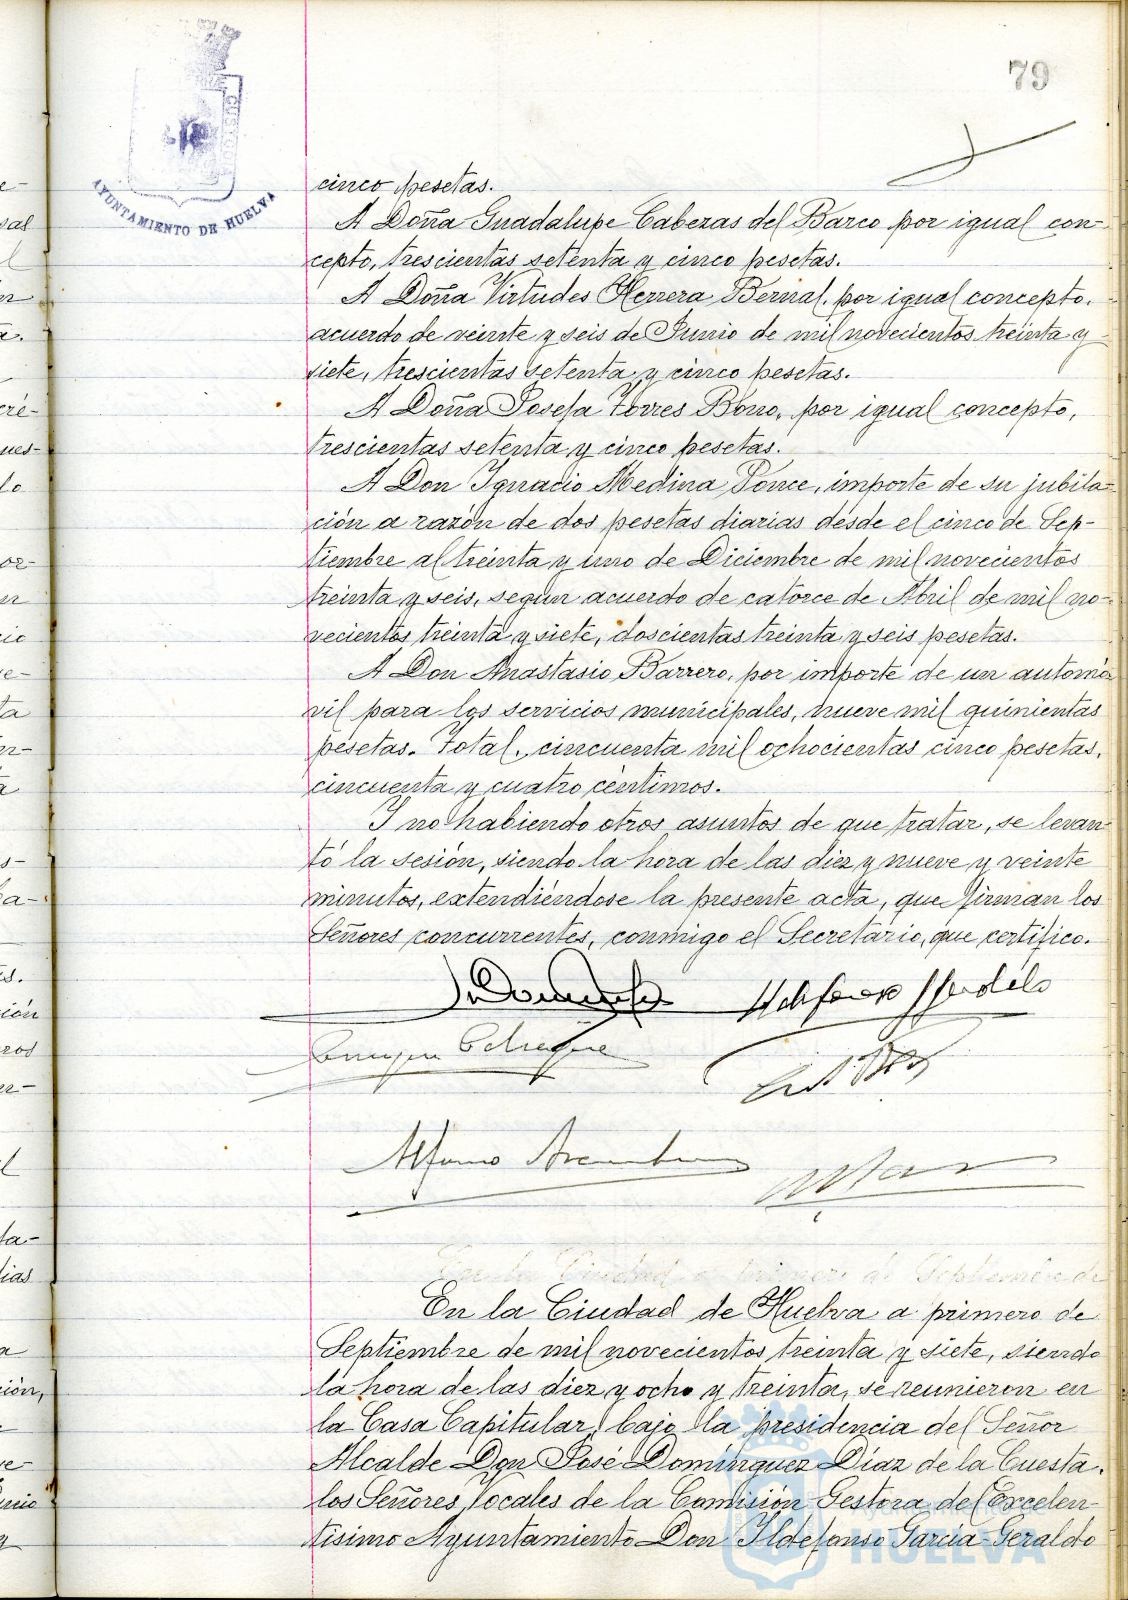 79
AYUNTAMIENTO DE HUELVA
cinco pesetas.
A Doña Guadalupe Cabezas del Barco por igual con-
cepto, trescientas setenta y cinco pesetas.
A Doña Virtudes Herrera Bernal, por igual concepto,
acuerdo de veinte y seis de Junio de mil novecientos treinta y
siete, trescientas setenta y cinco pesetas.
A Doña Josefa Torres Bono, por igual concepto,
trescientas setenta y cinco pesetas.
A Don Ignacio Medina Ponce, importe de su jubila-
ción a razón de dos pesetas diarias desde el cinco de Sep-
tiembre al treinta y uno de Diciembre de mil novecientos
treinta y seis, según acuerdo de catorce de Abril de mil no-
vecientos treinta y siete, doscientas treinta y seis pesetas.
A Don Anastasio Barrero, por importe de un automó-
vil para los servicios municipales, nueve mil quinientas
pesetas. Total, cincuenta mil ochocientas cinco pesetas,
cincuenta y cuatro céntimos.
Y no habiendo otros asuntos de que tratar, se levan-
tó la sesión, siendo la hora de las diez y nueve y veinte
minutos, extendiéndose la presente acta, que firman los
Señores concurrentes, conmigo el Secretario, que certifico.
En la Ciudad de Huelva a primero de
Septiembre de mil novecientos treinta y siete, siendo
la hora de las diez y ocho y treinta, se reunieron en
la Casa Capitular, bajo la presidencia del Señor
Alcalde Don José Domínguez Díaz de la Cuesta,
los Señores Vocales de la Comisión Gestora del Excelen-
tísimo Ayuntamiento Don Ildefonso García Geraldo
Ayuntamiento de
HUELVA